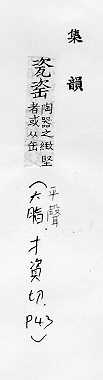 集韻
瓷
陶器之緻堅
者或从缶
平聲
(六脂.才資切.P43)